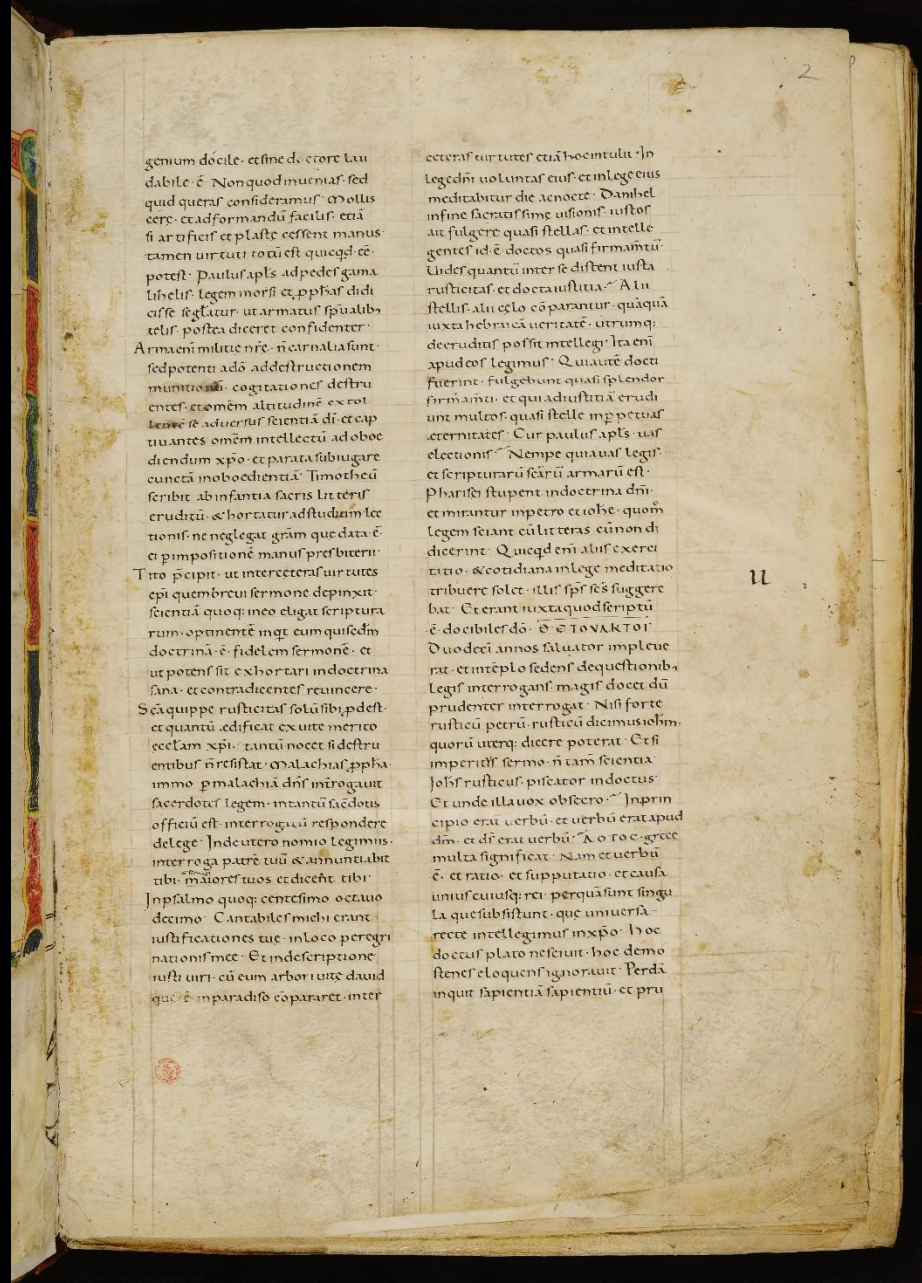 2
genium docile· et sine doctore lau
dabile·ē· Non quod inuenias· sed
quid queras consideramus· Mollis
cęrę· et ad formandū facilis· etiā
si artificis et plastę cessent manus·
tamen uirtuti totū est quicqd·eē·
potest· Paulus apls ad pedes gama
lihelis· legem moysi et pphas didi
cisse se gľatur· ut armatus spualib;
telis· postea diceret confidenter·
Arma eni militię nrę· n̄ carnalia sunt·
sed potenti a dō ad destructionem
munitionū· cogitationes destru
entes· et omēm altitudinē extol
lentē se aduersus scientiā di· et cap
tiuantes omēm intellectū ad oboe
diendum xpo· et parata subiugare
cunctā inoboedientiā· Timotheū
scribit ab infantia sacris litteris
eruditū· & hortatur ad studium lec
tionis· ne neglegat gr̄am que data·ē·
ei p impositionē manus presbiterii·
Tito p̄cipit· ut inter ceteras uirtutes
epi quem breui sermone depinxit·
scientiā quoq; in eo eligat scriptura
rum· optinentē inqt eum qui sedm
doctrinā·ē· fidelem sermonē· et
ut potens sit exhortari in doctrina
sana· et contradicentes reuincere·
Scā quippe rusticitas solū sibi pdest·
et quantū ędificat ex uitę merito
ecclam xpi· tantū nocet si destru
entibus n̄ resistat· Malachias ppha·
immo p malachiā dn̄s int̄rogauit
sacerdotes legem· in tantū sac̄dotis
officiū est· interrogatū respondere
de lege· Inde utero nomio legimus·
interroga patrē tuū & annuntiabit
tibi· maiores tuos et dicent tibi·
In psalmo quoq; centesimo octauo
decimo· Cantabiles michi erant
iustificationes tuę· in loco peregri
nationis meę· Et in descriptione
iusti uiri· cū eum arbori uitę dauid
que·ē· in paradiso cōpararet· inter
ceteras uirtutes etiā hoc intulit· In
lege dni uoluntas eius· et in lege eius
meditabitur die ac nocte· Danihel
in fine sacratissimę uisionis· iustos
ait fulgere quasi stellas· et intelle
gentes id·ē· doctos quasi firmamtū·
Uides quantū inter se distent iusta
rusticitas· et docta iustitia· Alii
stellis· alii cęlo cōparantur· quāquā
iuxta hebraicā ueritatē· utrumq;
de eruditis possit intellegi· Ita eni
apud eos legimus· Qui autē docti
fuerint· fulgebunt quasi splendor
firmamti· et qui ad iustitiā erudi
unt multos· quasi stellę in ppetuas
ęternitates· Cur paulus apls· uas
electionis· Nempe quia uas legis·
et scripturarū scārū armarū est·
Pharisei stupent in doctrina dni·
et mirantur in petro et iohe· quom
legem sciant cū litteras cū non di
dicerint· Quicqd eni aliis exerci
tatio· & cotidiana in lege meditatio
tribuere solet· illis sps scs suggere
bat· Et erant iuxta quod scriptū
·ē· docibiles dō· ΘΕΤΟVΑΚΤΟΙ
Duodeci annos saluator impleue
rat· et in tēplo sedens de questionib;
legis interrogans· magis docet dū
prudenter interrogat· Nisi forte
rusticū petrū· rusticū dicimus iohm·
quorū uterq; dicere poterat· Et si
imperitus sermo· n̄ tam scientia·
Johs rusticus· piscator indoctus·
Et unde illa uox obsecro· In prin
cipio erat uerbū· et uerbū erat apud
dm̄· et ds̄ erat uerbū· ΛΟΓΟC· grece
multa significat· Nam et uerbū
·ē· et ratio· et supputatio· et causa
unius cuiusq; rei· per quā sunt singu
la que subsistunt· que uniuersa
recte intellegimus in xpo· Hoc
doctus plato nesciuit· hoc demo
stenes eloquens ignorauit· Perdā
inquit sapientiā sapientiū· et pru
u